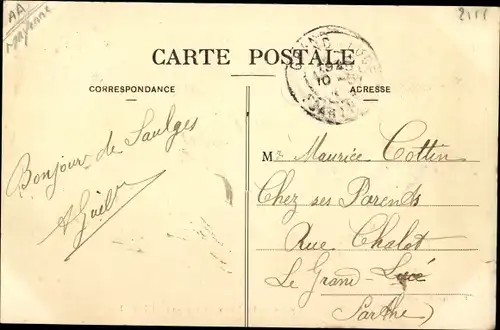 AA
Mayenne
CARTE POSTALE
CORRESPONDANCE
ADRESSE
GRAND
SARTHE
Bonjour de Saulges
Mr Maurice Cottin
Chez ses Parends
Rue Chalot
Le Grand-Lucé
Sarthe